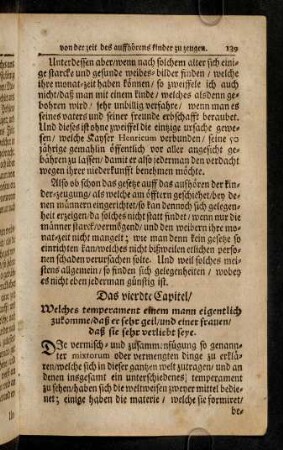 von der zeit des auffhörens kinder zu zeugen. 129
Unterdessen aber/wenn nach solchem alter sich eini-
ge starcke und gesunde weibes-bilder finden / welche
ihre monat-zeit haben können / so zweiffele ich auch
nicht/daß man mit einem kinde / welches alsdenn ge-
bohren wird / sehr unbillig verfahre / wenn man es
seines vaters und seiner freunde erbschafft beraubet.
Und dieses ist ohne zweiffel die eintzige ursache gewe-
sen/ welche Kayser Henricum verbunden/ seine 50
jährige gemahlin öffentlich vor aller angesicht ge-
bähren zu lassen/ damit er also jederman den verdacht
wegen ihrer niederkunfft benehmen möchte.
Also ob schon das gesetz auff das aufhören der kin-
der-zeugung/als welche am öfftern geschiehet/bey de-
nen männern eingerichtet/so kan dennoch sich gelegen-
heit erzeigen/da solches nicht statt findet/wenn nur die
männer starck/vermögend/ und den weibern ihre mo-
nat-zeit nicht mangelt; wie man denn kein gesetze so
einrichten kan/welches nicht bißweilen etlichen perso-
nen schaden verursachen solte. Und weil solches mei-
stens allgemein/ so finden sich gelegenheiten / wobey
es nicht eben jederman günstig ist.
Das vierdte Capitel/
Welches temperament einem mann eigentlich
zukomme/daß er sehr geil/und einer frauen/
daß sie sehr verliebt seye.
DJe vermisch- und zusammenfügung so genann-
ter mixtorum oder vermengten dinge zu erklä-
ren/welche sich in dieser gantzen welt zutragen/ und an
denen insgesamt ein unterschiedenes temperament
zu sehen/haben sich die weltweisen zweyer mittel bedie-
net; einige haben die materie/ welche sie formiret/
be-